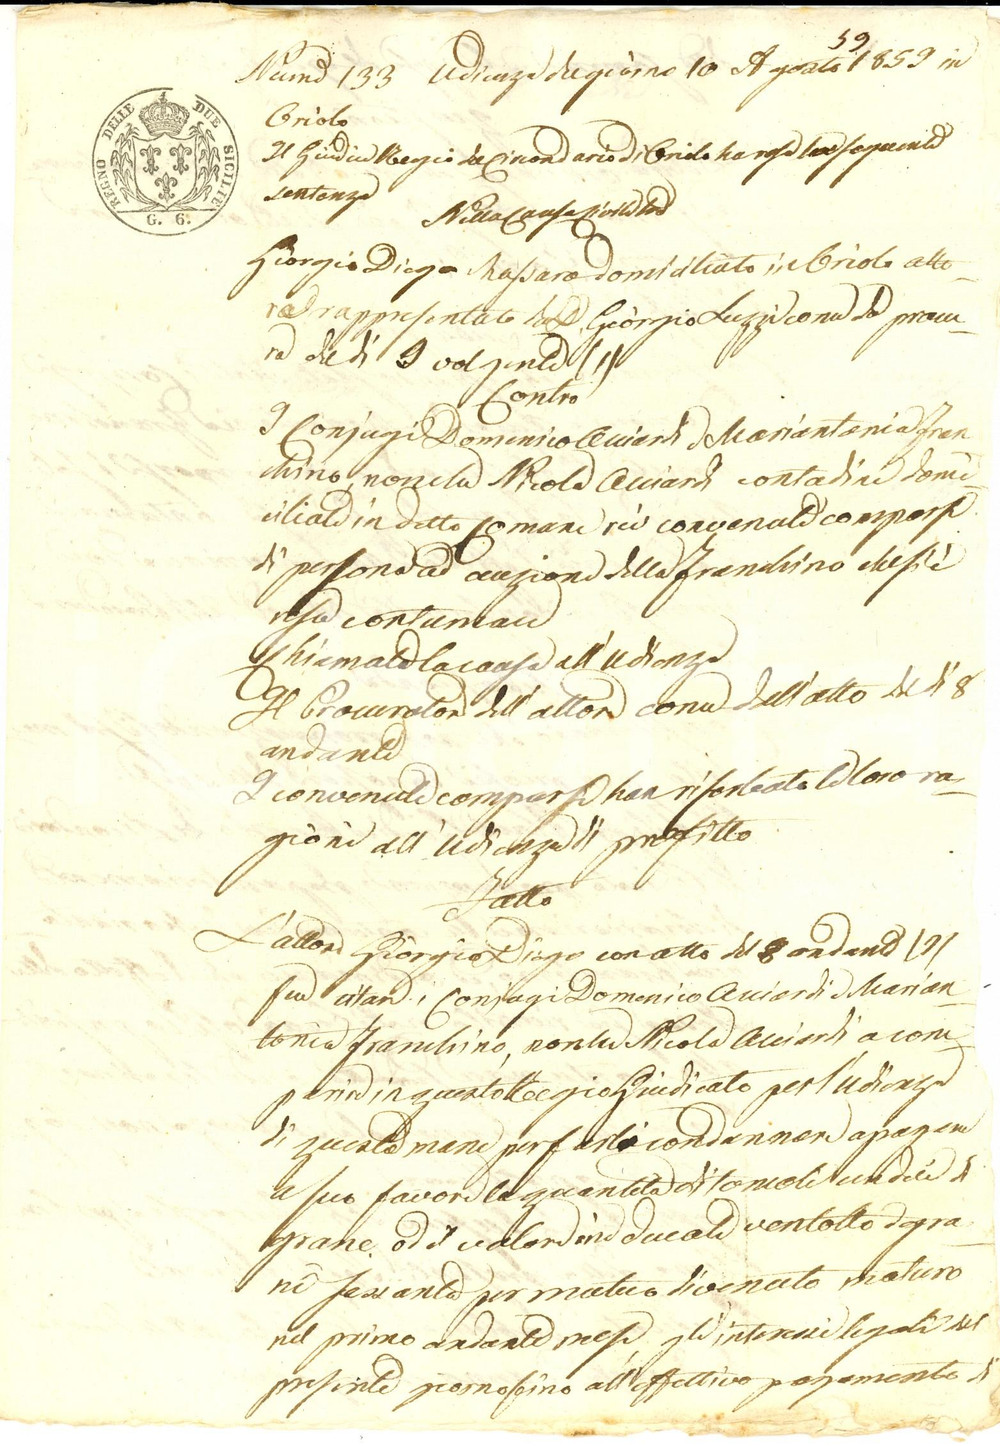 59
Num° 133 Udienza del giorno 10 Agosto 1859 in
Oriolo
Il Giudice Regio del Circondario di Oriolo ha reso la seguente
sentenza
Nella Causa Civile
REGNO DELLE DUE SICILIE
G. 6.
Giorgio Diego Massaro domiciliato in Oriolo atto-
re rappresentato da D. Giorgio Luzzi come da procu-
ra del dì 9 volgente (1)
Contro
I Conjugi Domenico Acciardi e Mariantonia Fran
chino, nonché Nicola Acciardi contadini domi-
ciliati in detto Comune rei convenuti comparsi
di persona ad eccezione della Franchino che si è
resa contumace
Chiamata la causa all'udienza
Il Procuratore dell'attore come dall'atto del dì 8
andante
I convenuti comparsi han riportato le loro ra-
gioni all'udienza di
Fatto
L'attore Giorgio Diego con atto del 8 andante (2)
fece citare i Conjugi Domenico Acciardi e Marian-
tonia Franchino, nonché Nicola Acciardi a com-
parire in questo Regio Giudicato per l'udienza
di questa mane per farli condannare a pagare
a suo favore la quantità di tomoli undici di
grano, od il valore in ducati ventotto e gra-
ni sessanta per mutuo divenuto maturo
nel primo andante mese, gl'interessi legali dal
presente giorno sino all'effettivo pagamento di